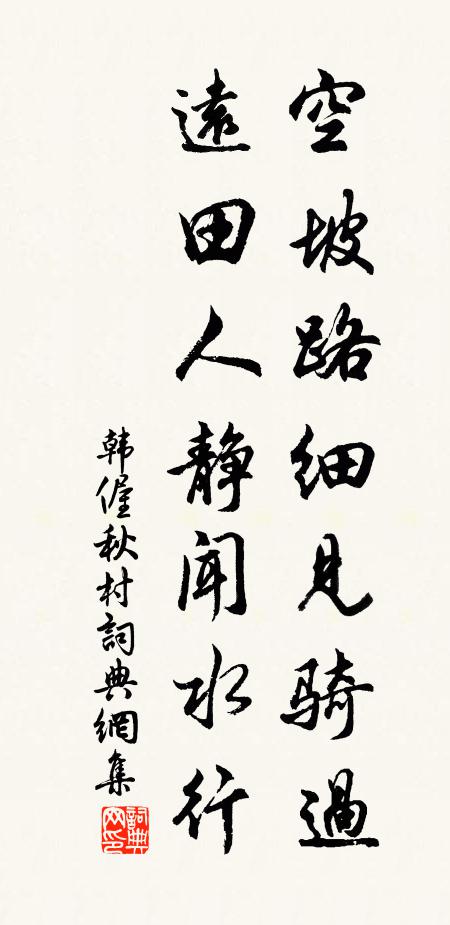 空坡路细見骑過
遠田人静闻水行
韩偓秋村詞典網集
詞典网印